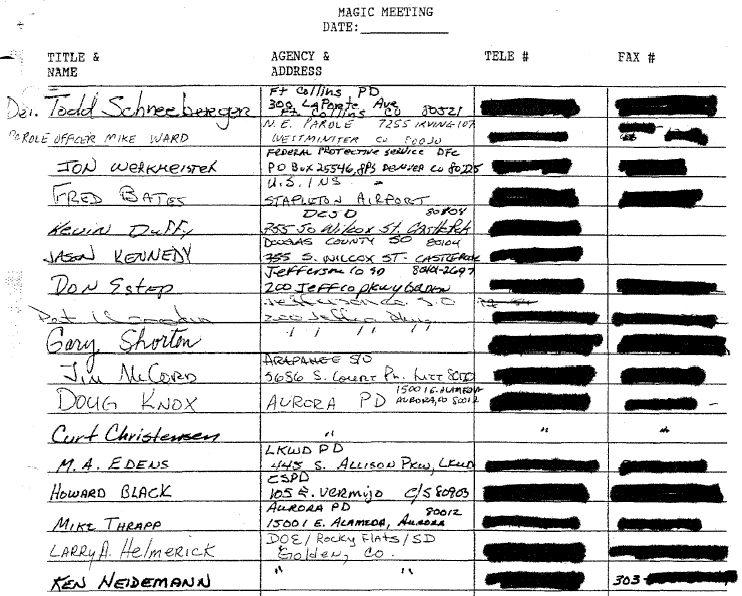 MAGIC MEETING
DATE:
TITLE & NAME AGENCY & ADDRESS TELE # FAX #
Det. Todd Schneeberger Ft Collins PD 300 LaPorte Ave Ft Collins CO 80521
PAROLE OFFICER MIKE WARD N.E. PAROLE 7255 IRVING 107 WESTMINSTER CO 80030
JON WERKMEISTER FEDERAL PROTECTIVE SERVICE DFC PO Box 25546, 8PS DENVER CO 80225
FRED BATES U.S. INS - STAPLETON AIRPORT
Kevin Duffy DCSO 80104 755 So Wilcox St. Castle Rk
JASON KENNEDY DOUGLAS COUNTY SO 80104 755 S. WILCOX ST. CASTLEROCK
DON Estep Jefferson Co SO 80401-2697 200 Jeffco pkwy Golden
Pat Jefferson Co. S.O 200 Jeffco Pkwy
Gary Shorten " " " "
Jim McCord ARAPAHOE S/O 5686 S. Court Pl. Litt
DOUG KNOX AURORA PD 15001 E. ALAMEDA AURORA, CO 80012
Curt Christensen " " "
M. A. EDENS LKWD PD 445 S. ALLISON PKW, LKWD
HOWARD BLACK CSPD 105 E. VERMIJO C/S 80903
MIKE THRAPP AURORA PD 80012 15001 E. ALAMEDA, AURORA
LARRY A. Helmerick DOE/Rocky Flats/SD Golden, Co.
KEN NEIDEMANN " " 303-